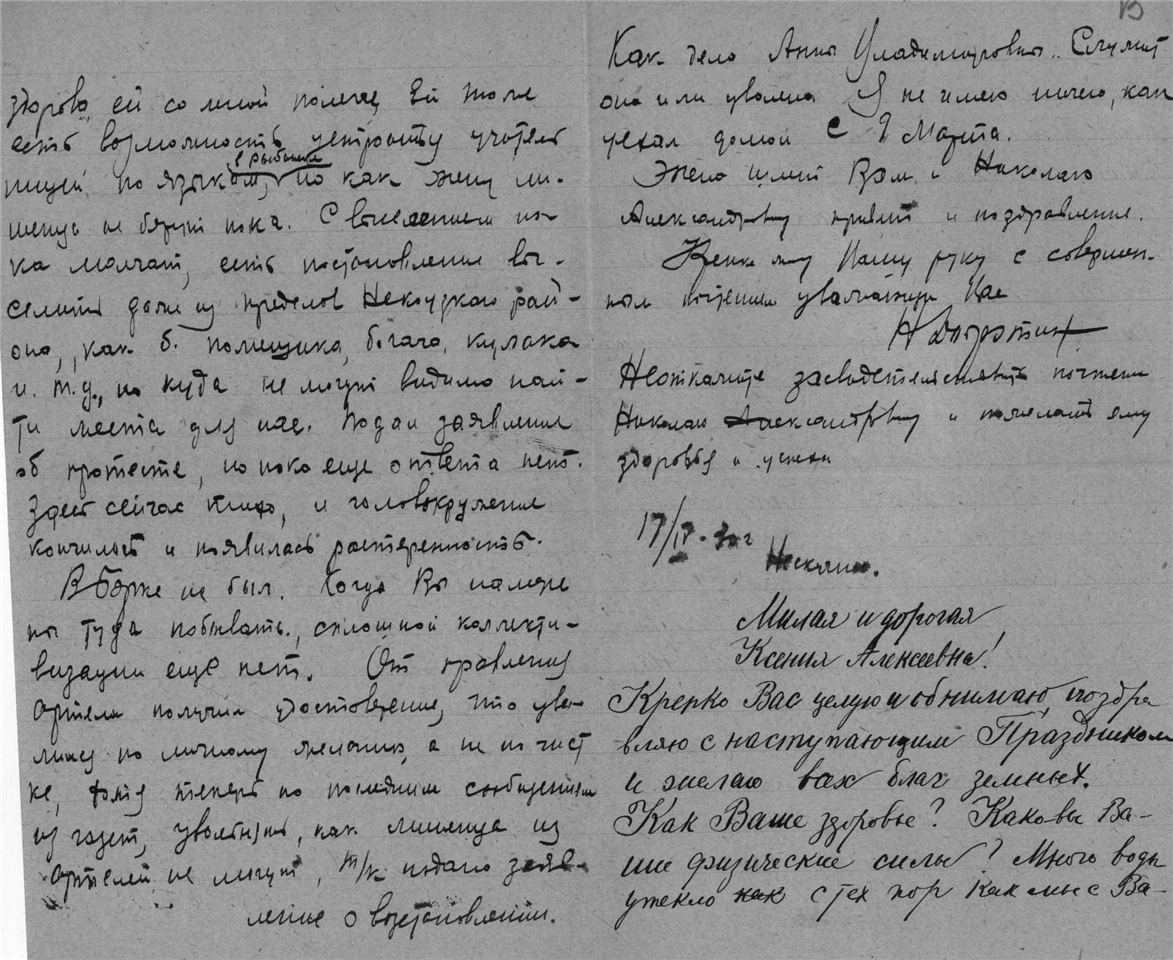 здорова, ей со мной полегче. Ей тоже
есть возможность устроиться учитель
в Рыбинске
ницей по языкам, но как жену ли-
шенца не берут пока. С выселением по-
ка молчат, есть постановление вы-
селить даже из пределов Некоузского рай-
она, как б. помещика, богача, кулака
и. т. д., но куда не могут видимо най-
ти места для нас. Подал заявление
об протесте, но пока еще ответа нет.
Здесь сейчас тихо, и головокружение
кончилось и появилась растерянность.
В Борке не был. Когда Вы намере
ны туда побывать, сплошной коллекти-
визации еще нет. От правления
Артели получил удостоверение, что уво-
лился по личному желанию, а не по чист
ке, хотя теперь по последним сообщениям
из газет, увольнять, как лишенца из
артелей не могут, т/к подано заяв-
ление о восстановлении.
Как дела Анны Владимировны. Служит
она или уволена. Я не имею ничего, как
уехал домой с 1 Марта.
Жена шлет Вам и Николаю
Александровичу привет и поздравление.
Крепко жму Вашу руку с совершен-
ным почтением уважающий Вас
Не откажите засвидетельствовать почтение
Николаю Александровичу и пожелать ему
здоровья и успеха
17/IV-30 г
Милая и дорогая
Ксения Алексеевна!
Крепко Вас целую и обнимаю, поздра
вляю с наступающим Праздником
и желаю всех благ земных.
Как Ваше здоровье? Каковы Ва-
ши физические силы? Много воды
утекло как с тех пор как мы с Ва-